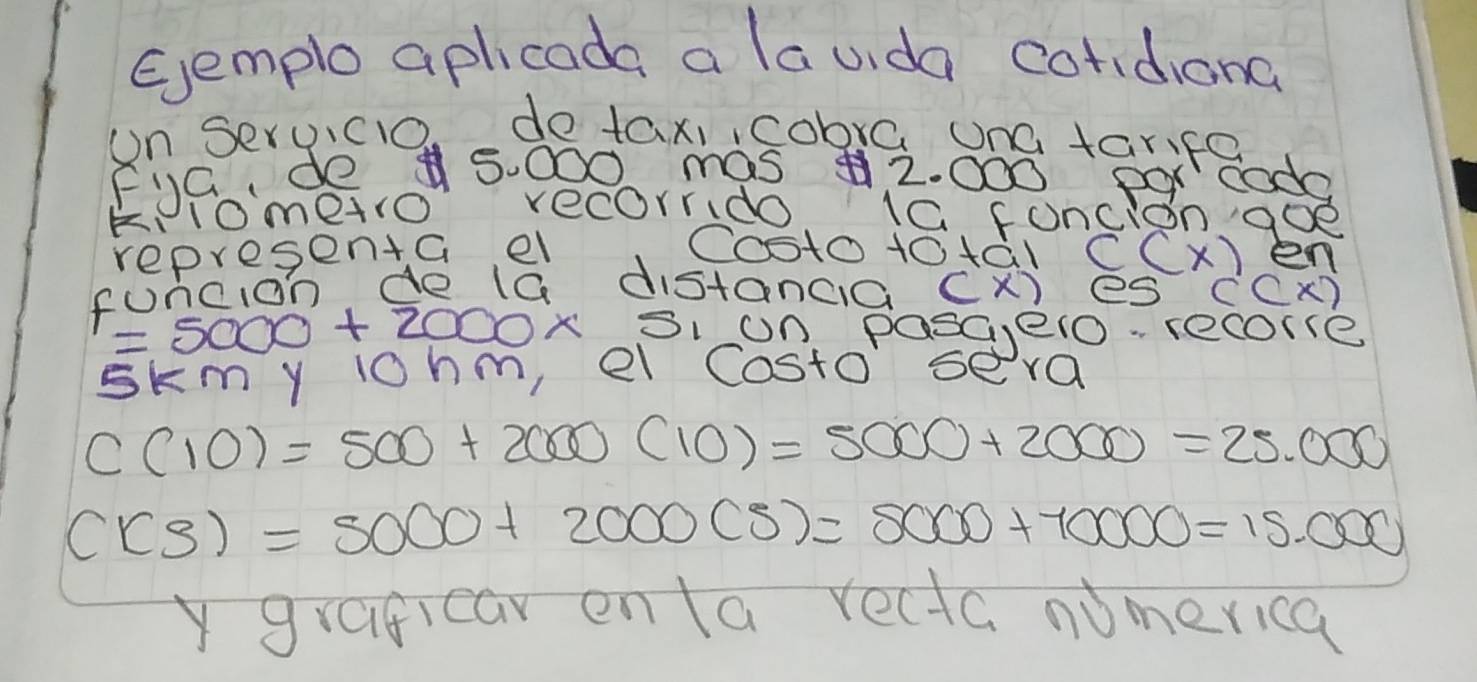 Ejemplo aplicada a la vida cotidiana
un servicio de taxi, cobra una tarifa
Fija, de $ 5.000 mas $ 2.000 por cada
kilometro recorrido la función que
representa el Costo total C(x) en
función de la distancia (x) es C(x)
= 5000 + 2000x si un pasajero recorre
5km y 10 hm, el Costo sera
C(10) = 500 + 2000 (10) = 5000 + 2000 = 25.000
C(5) = 5000 + 2000 (5) = 5000 + 10000 = 15.000
y graficar en la recta númerica